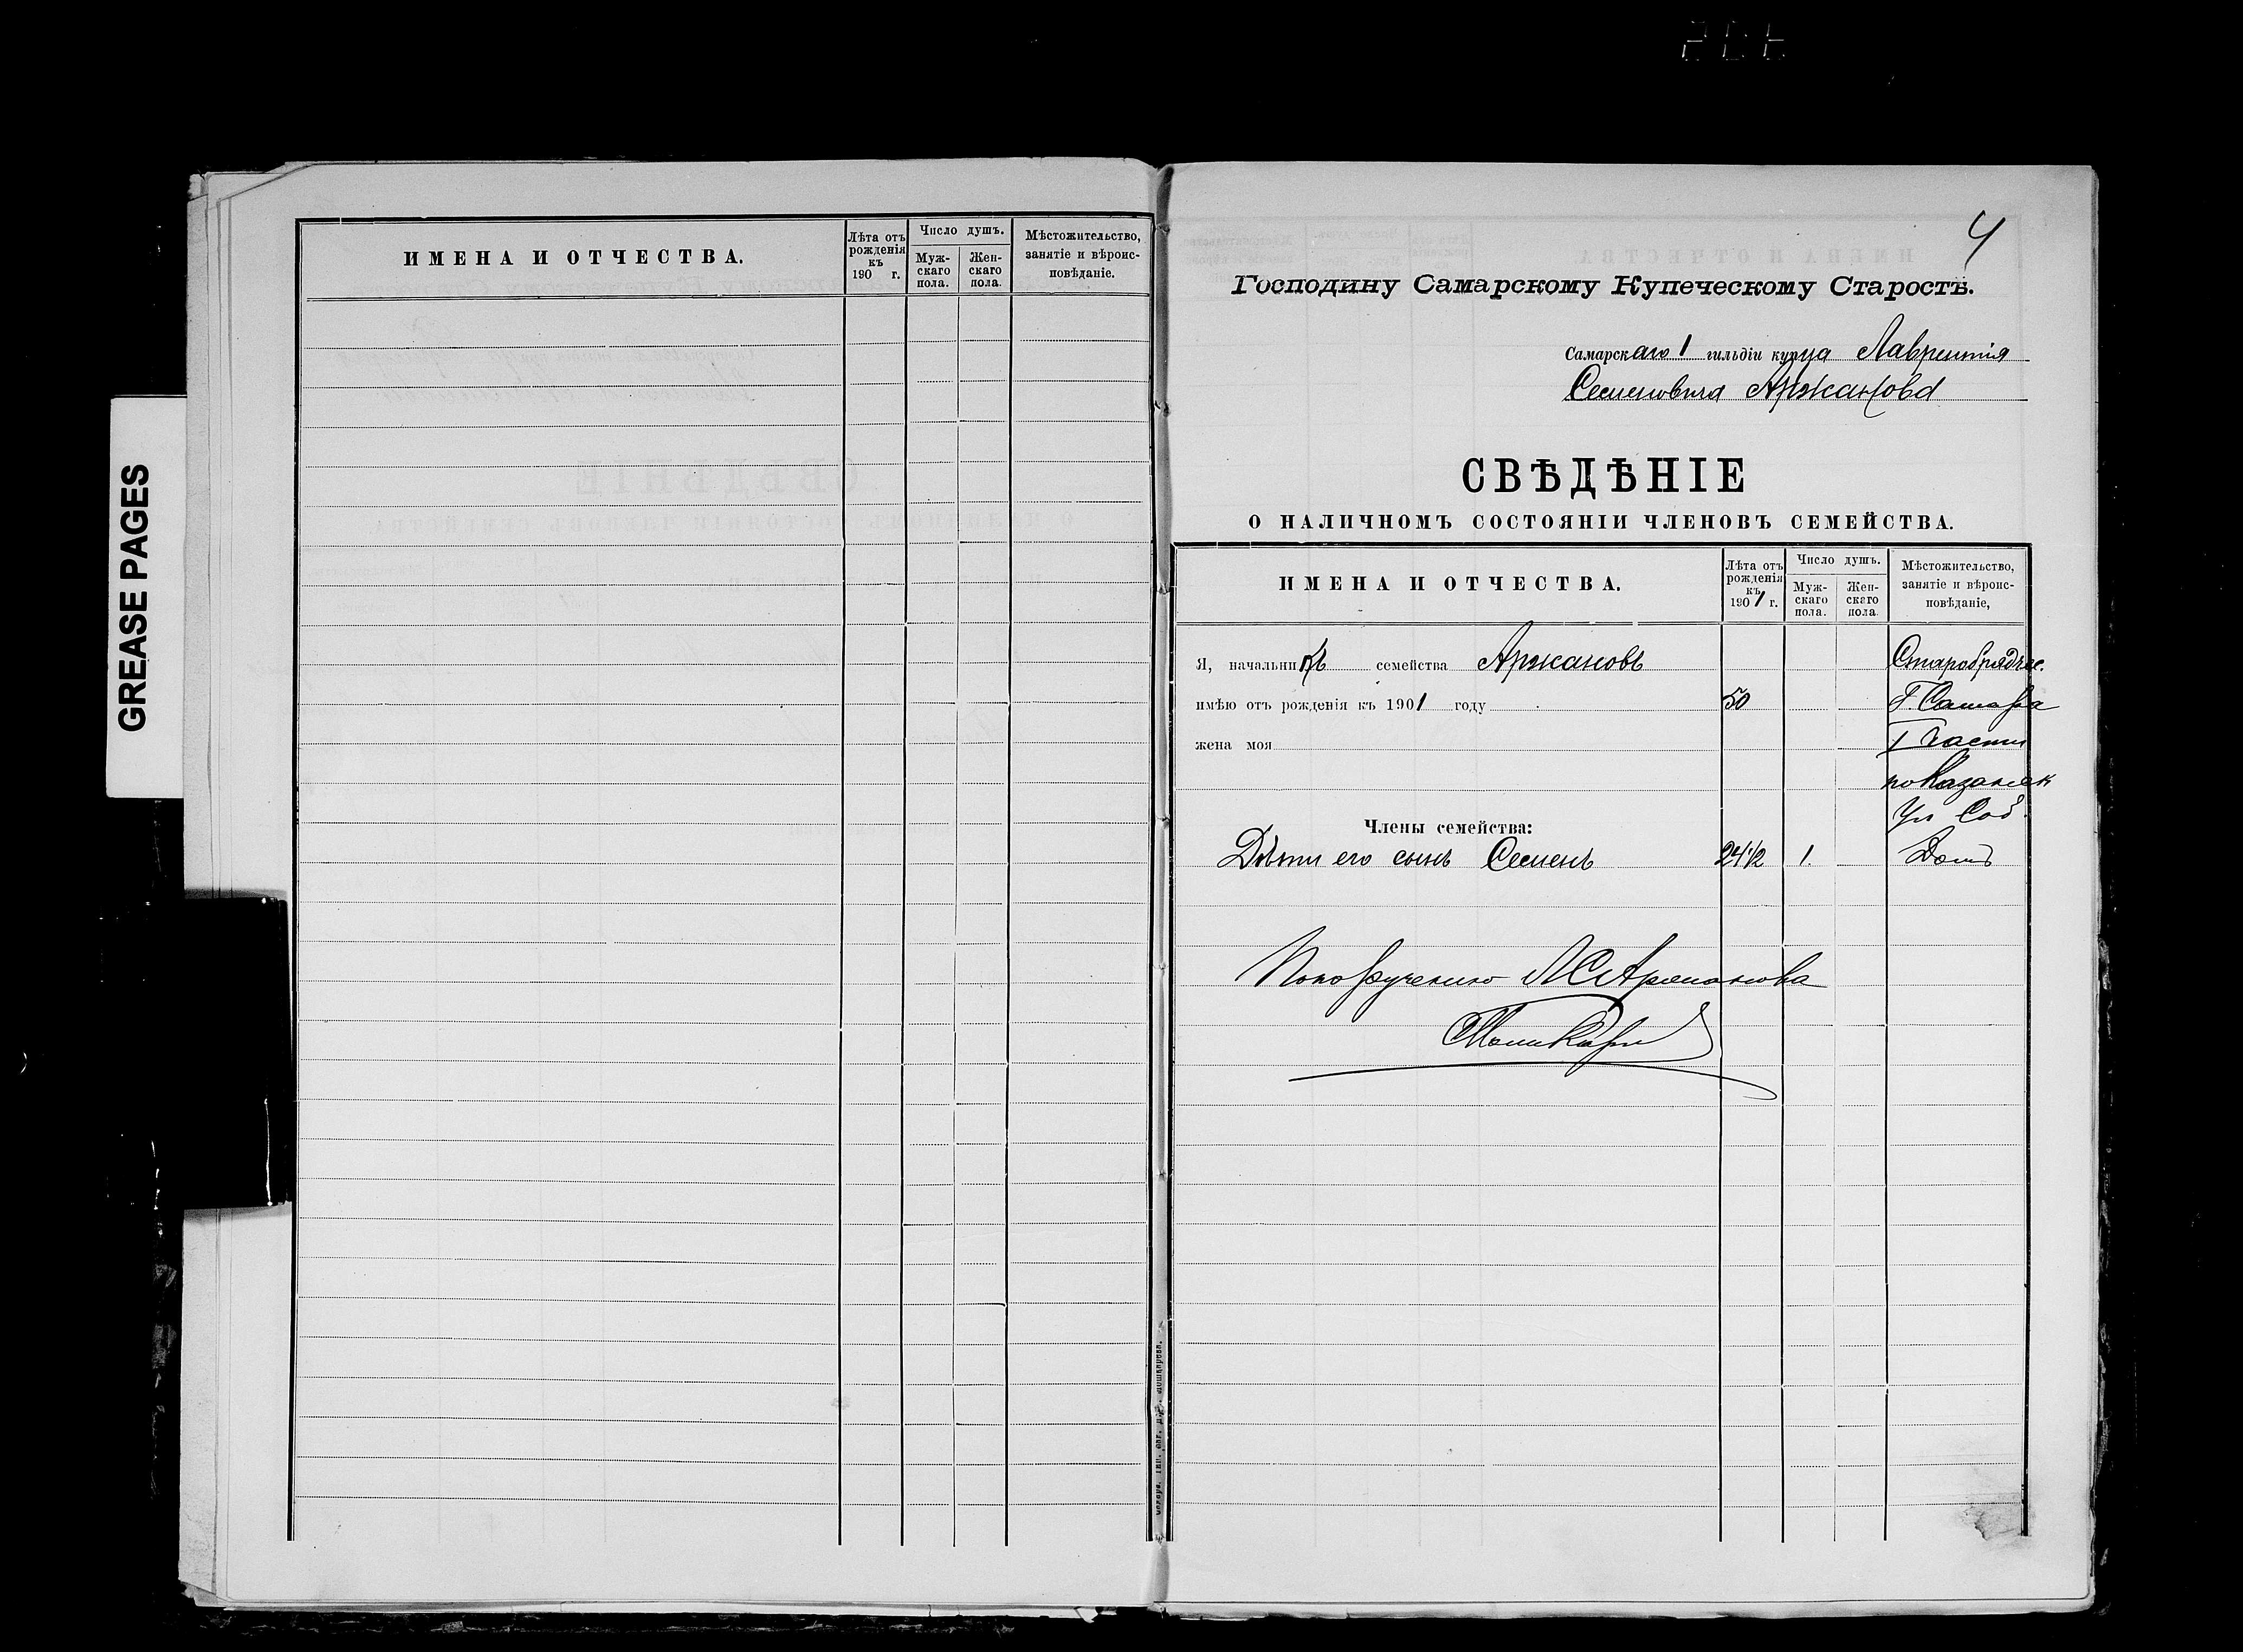 GREASE PAGES
ИМЕНА И ОТЧЕСТВА.
Лѣта отъ рожденія къ 190 г.
Число душъ.
Муж-скаго пола.
Жен-скаго пола.
Мѣстожительство, занятіе и вѣроис-повѣданіе.
4
Господину Самарскому Купеческому Старостѣ.
Самарскаго 1 гильдіи купца Лаврентія
Семеновича Аржанова
СВѢДѢНІЕ
О НАЛИЧНОМЪ СОСТОЯНІИ ЧЛЕНОВЪ СЕМЕЙСТВА.
ИМЕНА И ОТЧЕСТВА.
Лѣта отъ рожденія къ 1901 г.
Число душъ.
Муж-скаго пола.
Жен-скаго пола.
Мѣстожительство, занятіе и вѣроис-повѣданіе,
Я, начальникъ семейства Аржановъ
имѣю отъ рожденія къ 1901 году 50 Г. Самара
жена моя I части
по Казанск
Ул Соб.
Члены семейства:
Дѣти его сынъ Семенъ 24 1/2 1. Домъ
По порученію Л С Аржанова